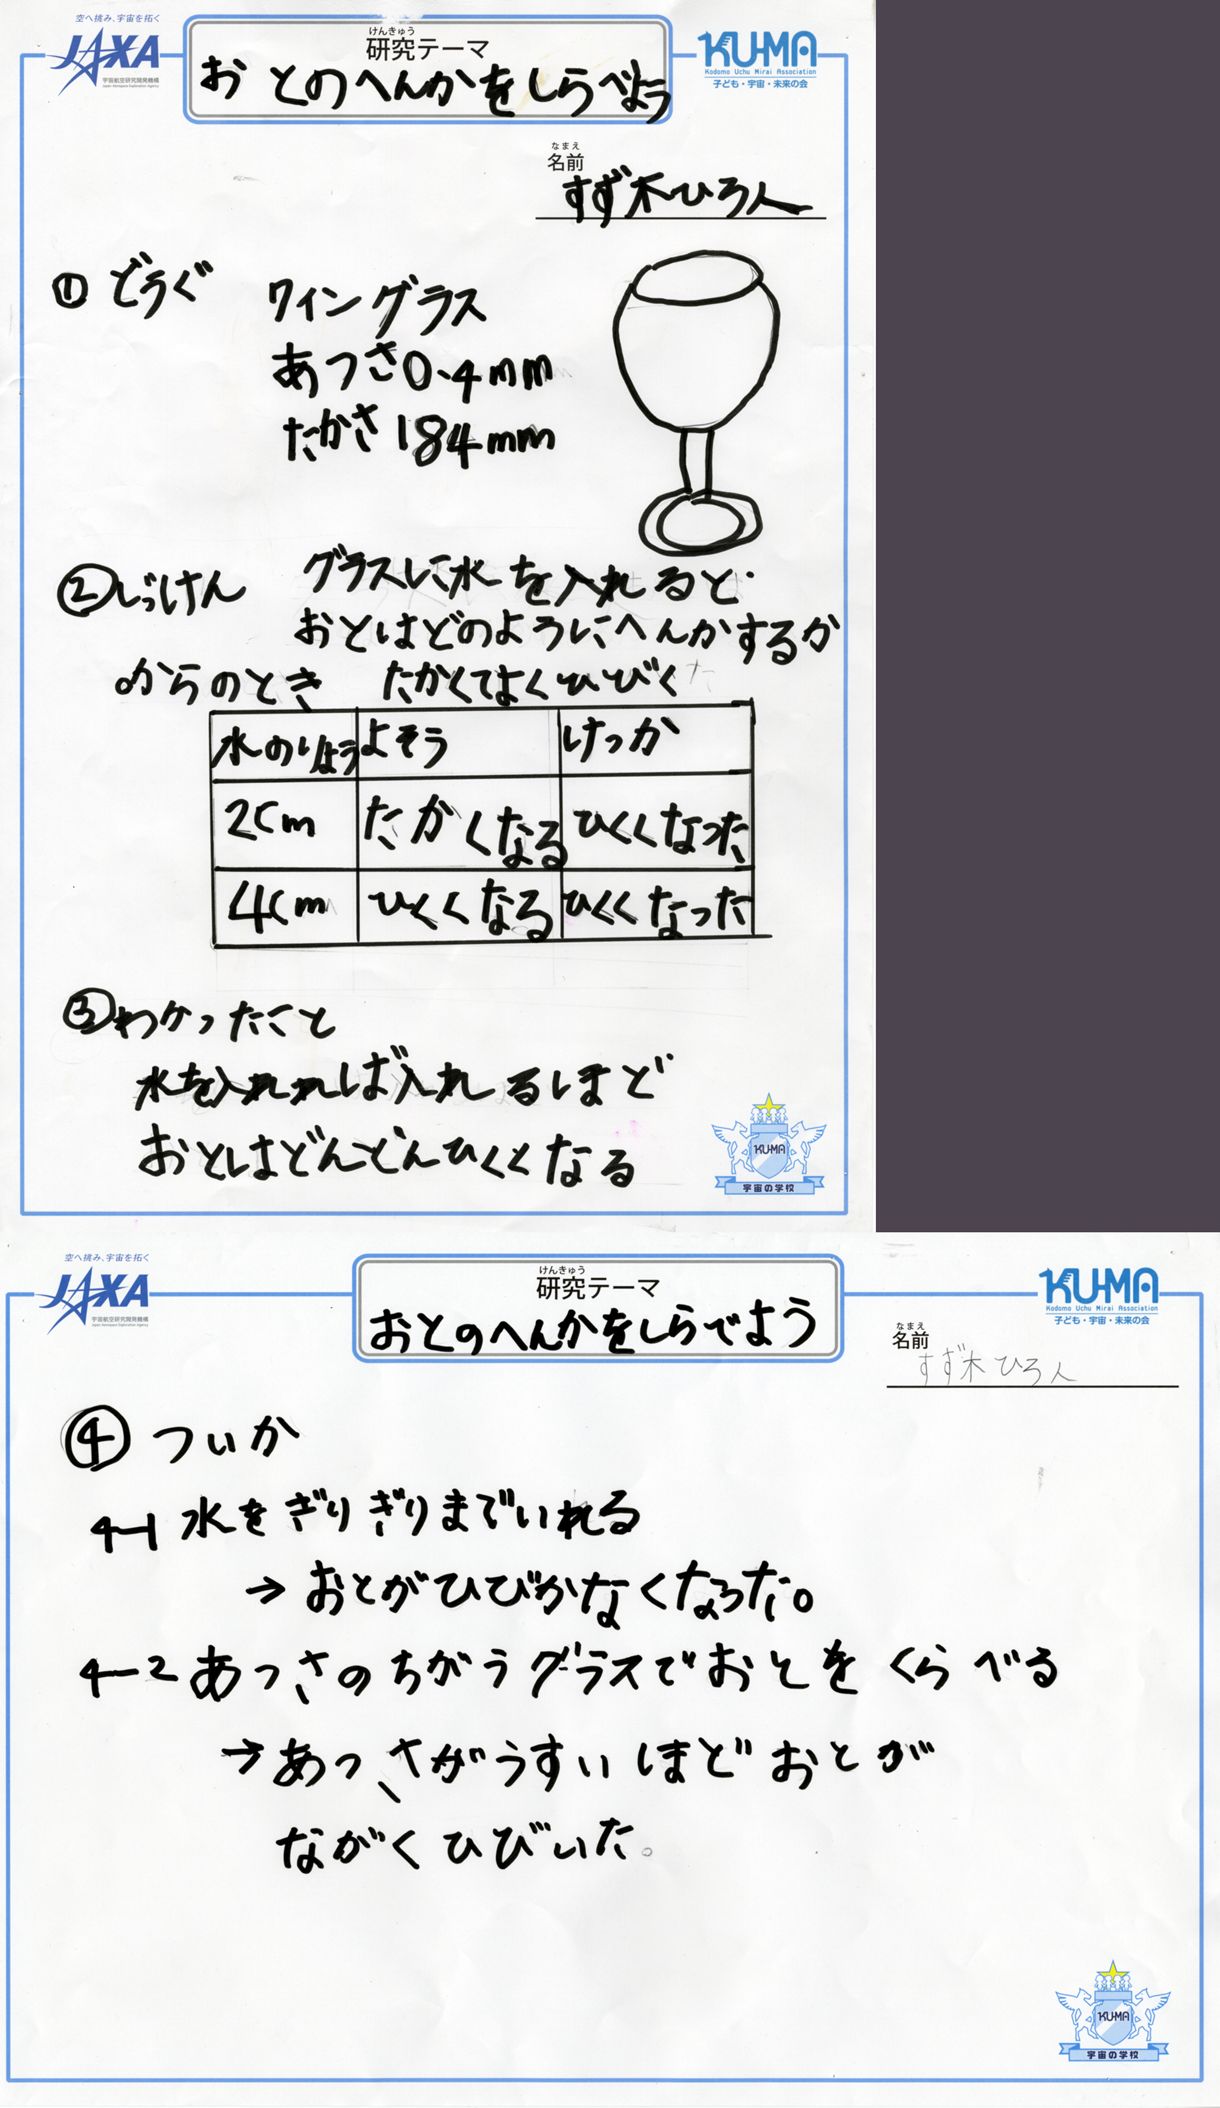 空へ挑み、宇宙を拓く
JAXA
宇宙航空研究開発機構
Japan Aerospace Exploration Agency
けんきゅう
研究テーマ
おとのへんかをしらべよう
KU-MA
Kodomo Uchu Mirai Association
子ども・宇宙・未来の会
なまえ
名前
すず木ひろ人
① どうぐ
ワイングラス
あつさ0.4mm
たかさ184mm
②じっけん グラスに水を入れると
おとはどのようにへんかするか
。からのとき たかくてよくひびく
水のりょう よそう けっか
2cm たかくなる ひくくなった
4cm ひくくなる ひくくなった
③わかったこと
水を入れれば入れるほど
おとはどんどんひくくなる
KU-MA
宇宙の学校
空へ挑み、宇宙を拓く
JAXA
宇宙航空研究開発機構
Japan Aerospace Exploration Agency
けんきゅう
研究テーマ
おとのへんかをしらでよう
KU-MA
Kodomo Uchu Mirai Association
子ども・宇宙・未来の会
なまえ
名前
すず木ひろ人
④ ついか
4-1 水をぎりぎりまでいれる
→おとがひびかなくなった。
4-2 あつさのちがうグラスでおとをくらべる
→あつさがうすいほどおとが
ながくひびいた。
KU-MA
宇宙の学校